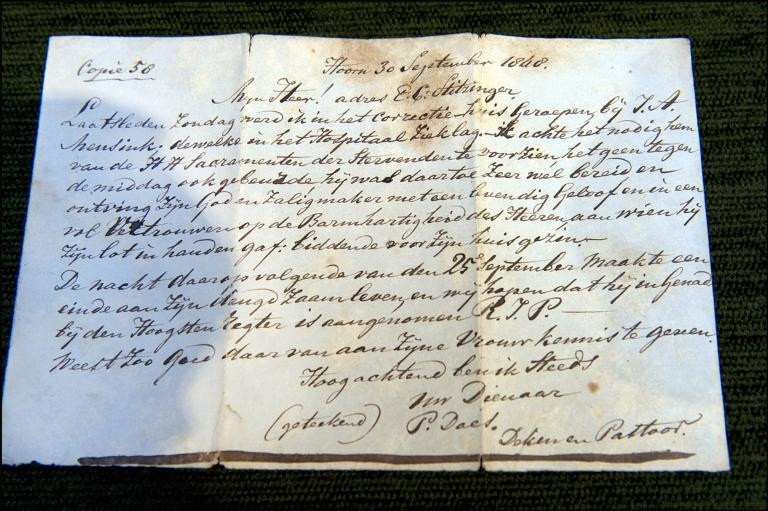 Copie 58
Hoorn 30 September 1848.
Mijn Heer! adres E. C. Stitzinger
Laatsleden Zondag werd ik in het Correctie huis geroepen, bij J. A.
Mensink. dewelke in het Hospitaal Ziek lag. Ik achte het nodig hem
van de H H Sacramenten der Stervende te voorzien, het geen tegen
de middag ook gebeurde hij was daar toe Zeer wel bereid en
ontving Zijn God en Zaligmaker met een levendig Geloof en in een
vol Vertrouwen op de Barmhartigheid des Heeren aan wien hij
Zijn lot in handen gaf: biddende voor Zijn huis gezin
De nacht daar op volgende van den 25e September maakte een
einde aan Zijn deugd Zaam leven, en wij hopen dat hij in Genade
bij den Hoogsten Regter is aangenomen R. I. P.
Weest Zoo Goed daar van aan Zijne Vrouw kennis te geven.
Hoog achtend ben ik Steeds
Uw Dienaar
(geteekend) P. Daes.
Deken en Pastoor.